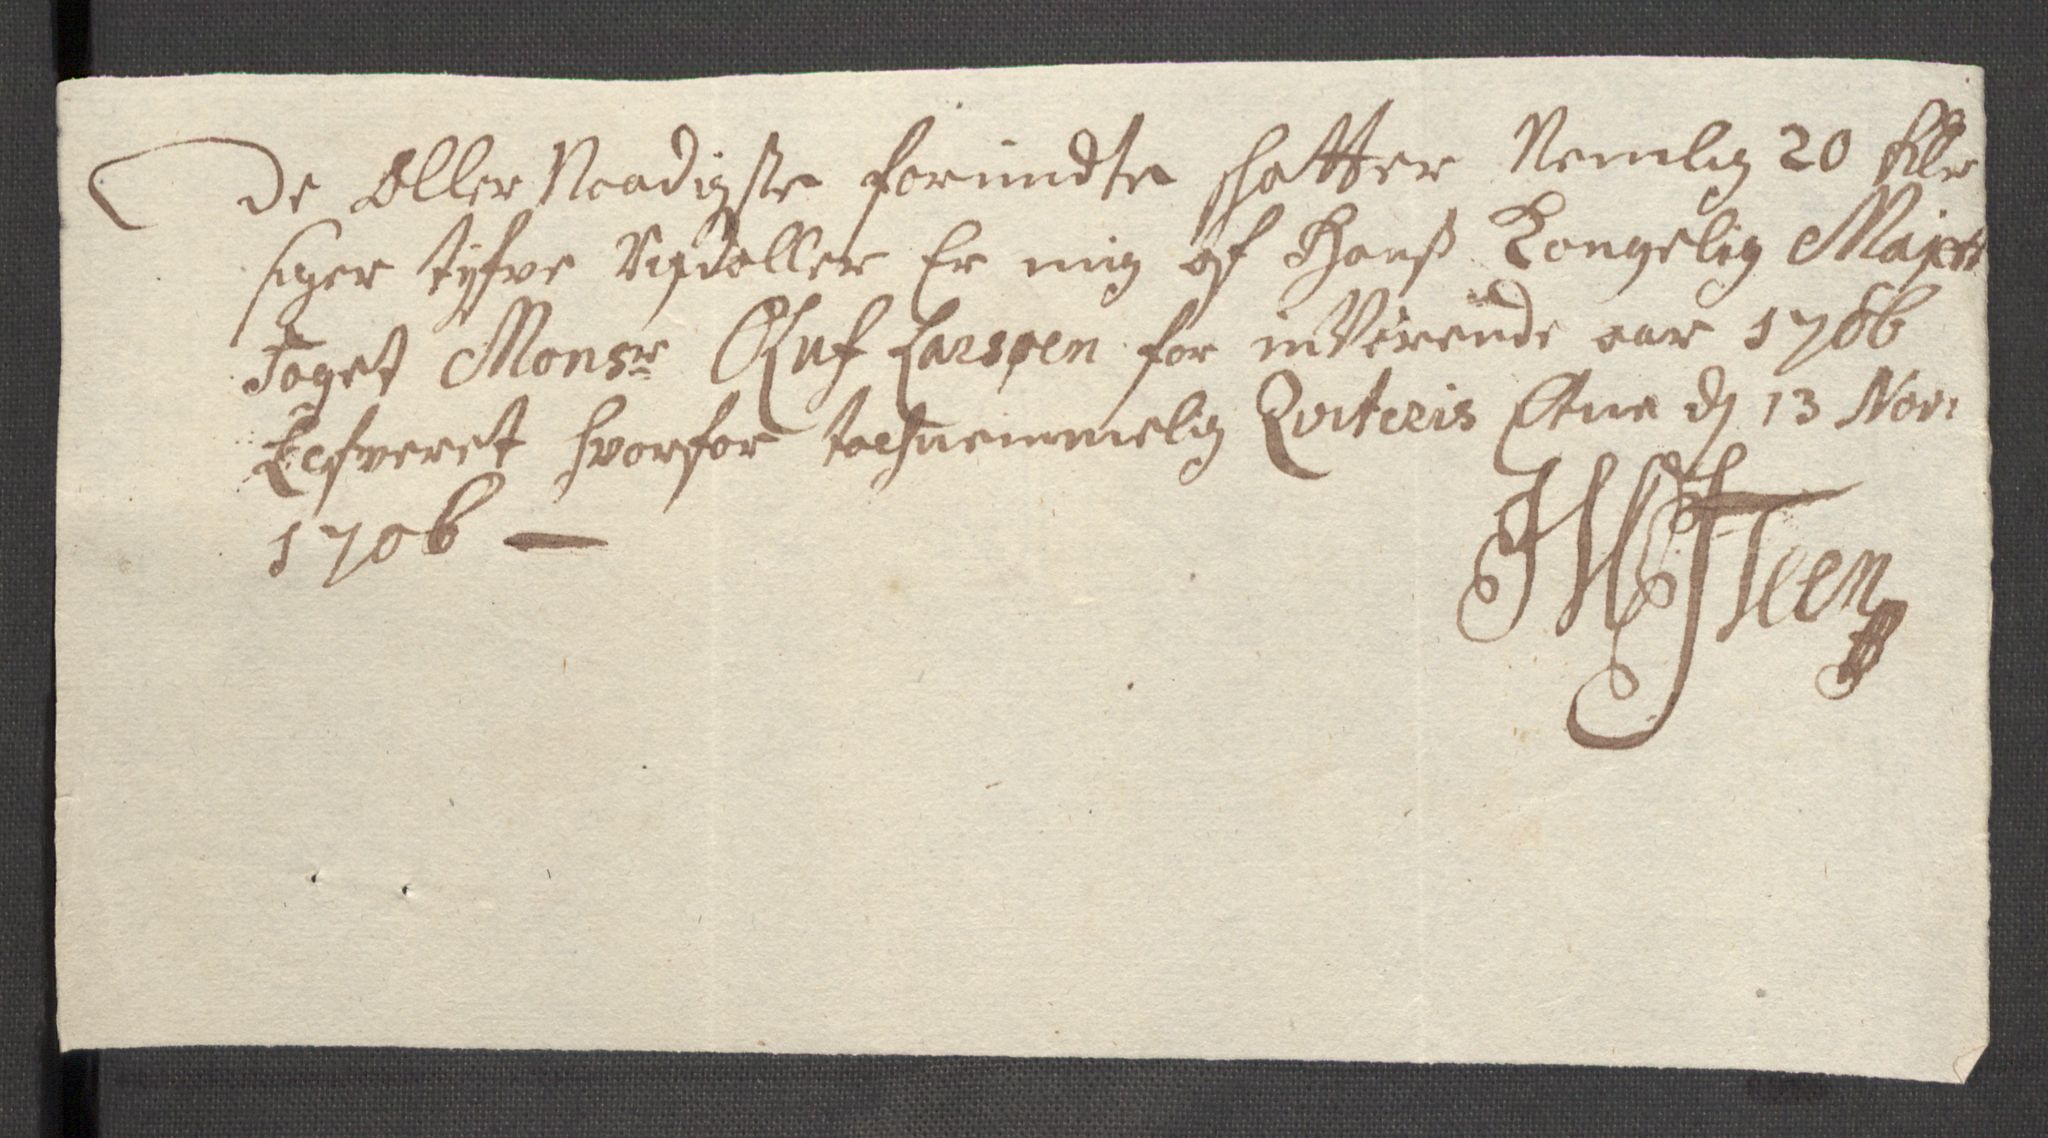 De Aller Naadigste forundte skatter Nemlig 20
siger tyfve Rixdaller Er mig af Hans Kongelig Majest
Foget Monsr Oluf Larsøen for inVerende aar 1706
Lefveret hvorfor tachnemmelig Qviteris Etne d 13 Nov:
1706 —
HSTeen